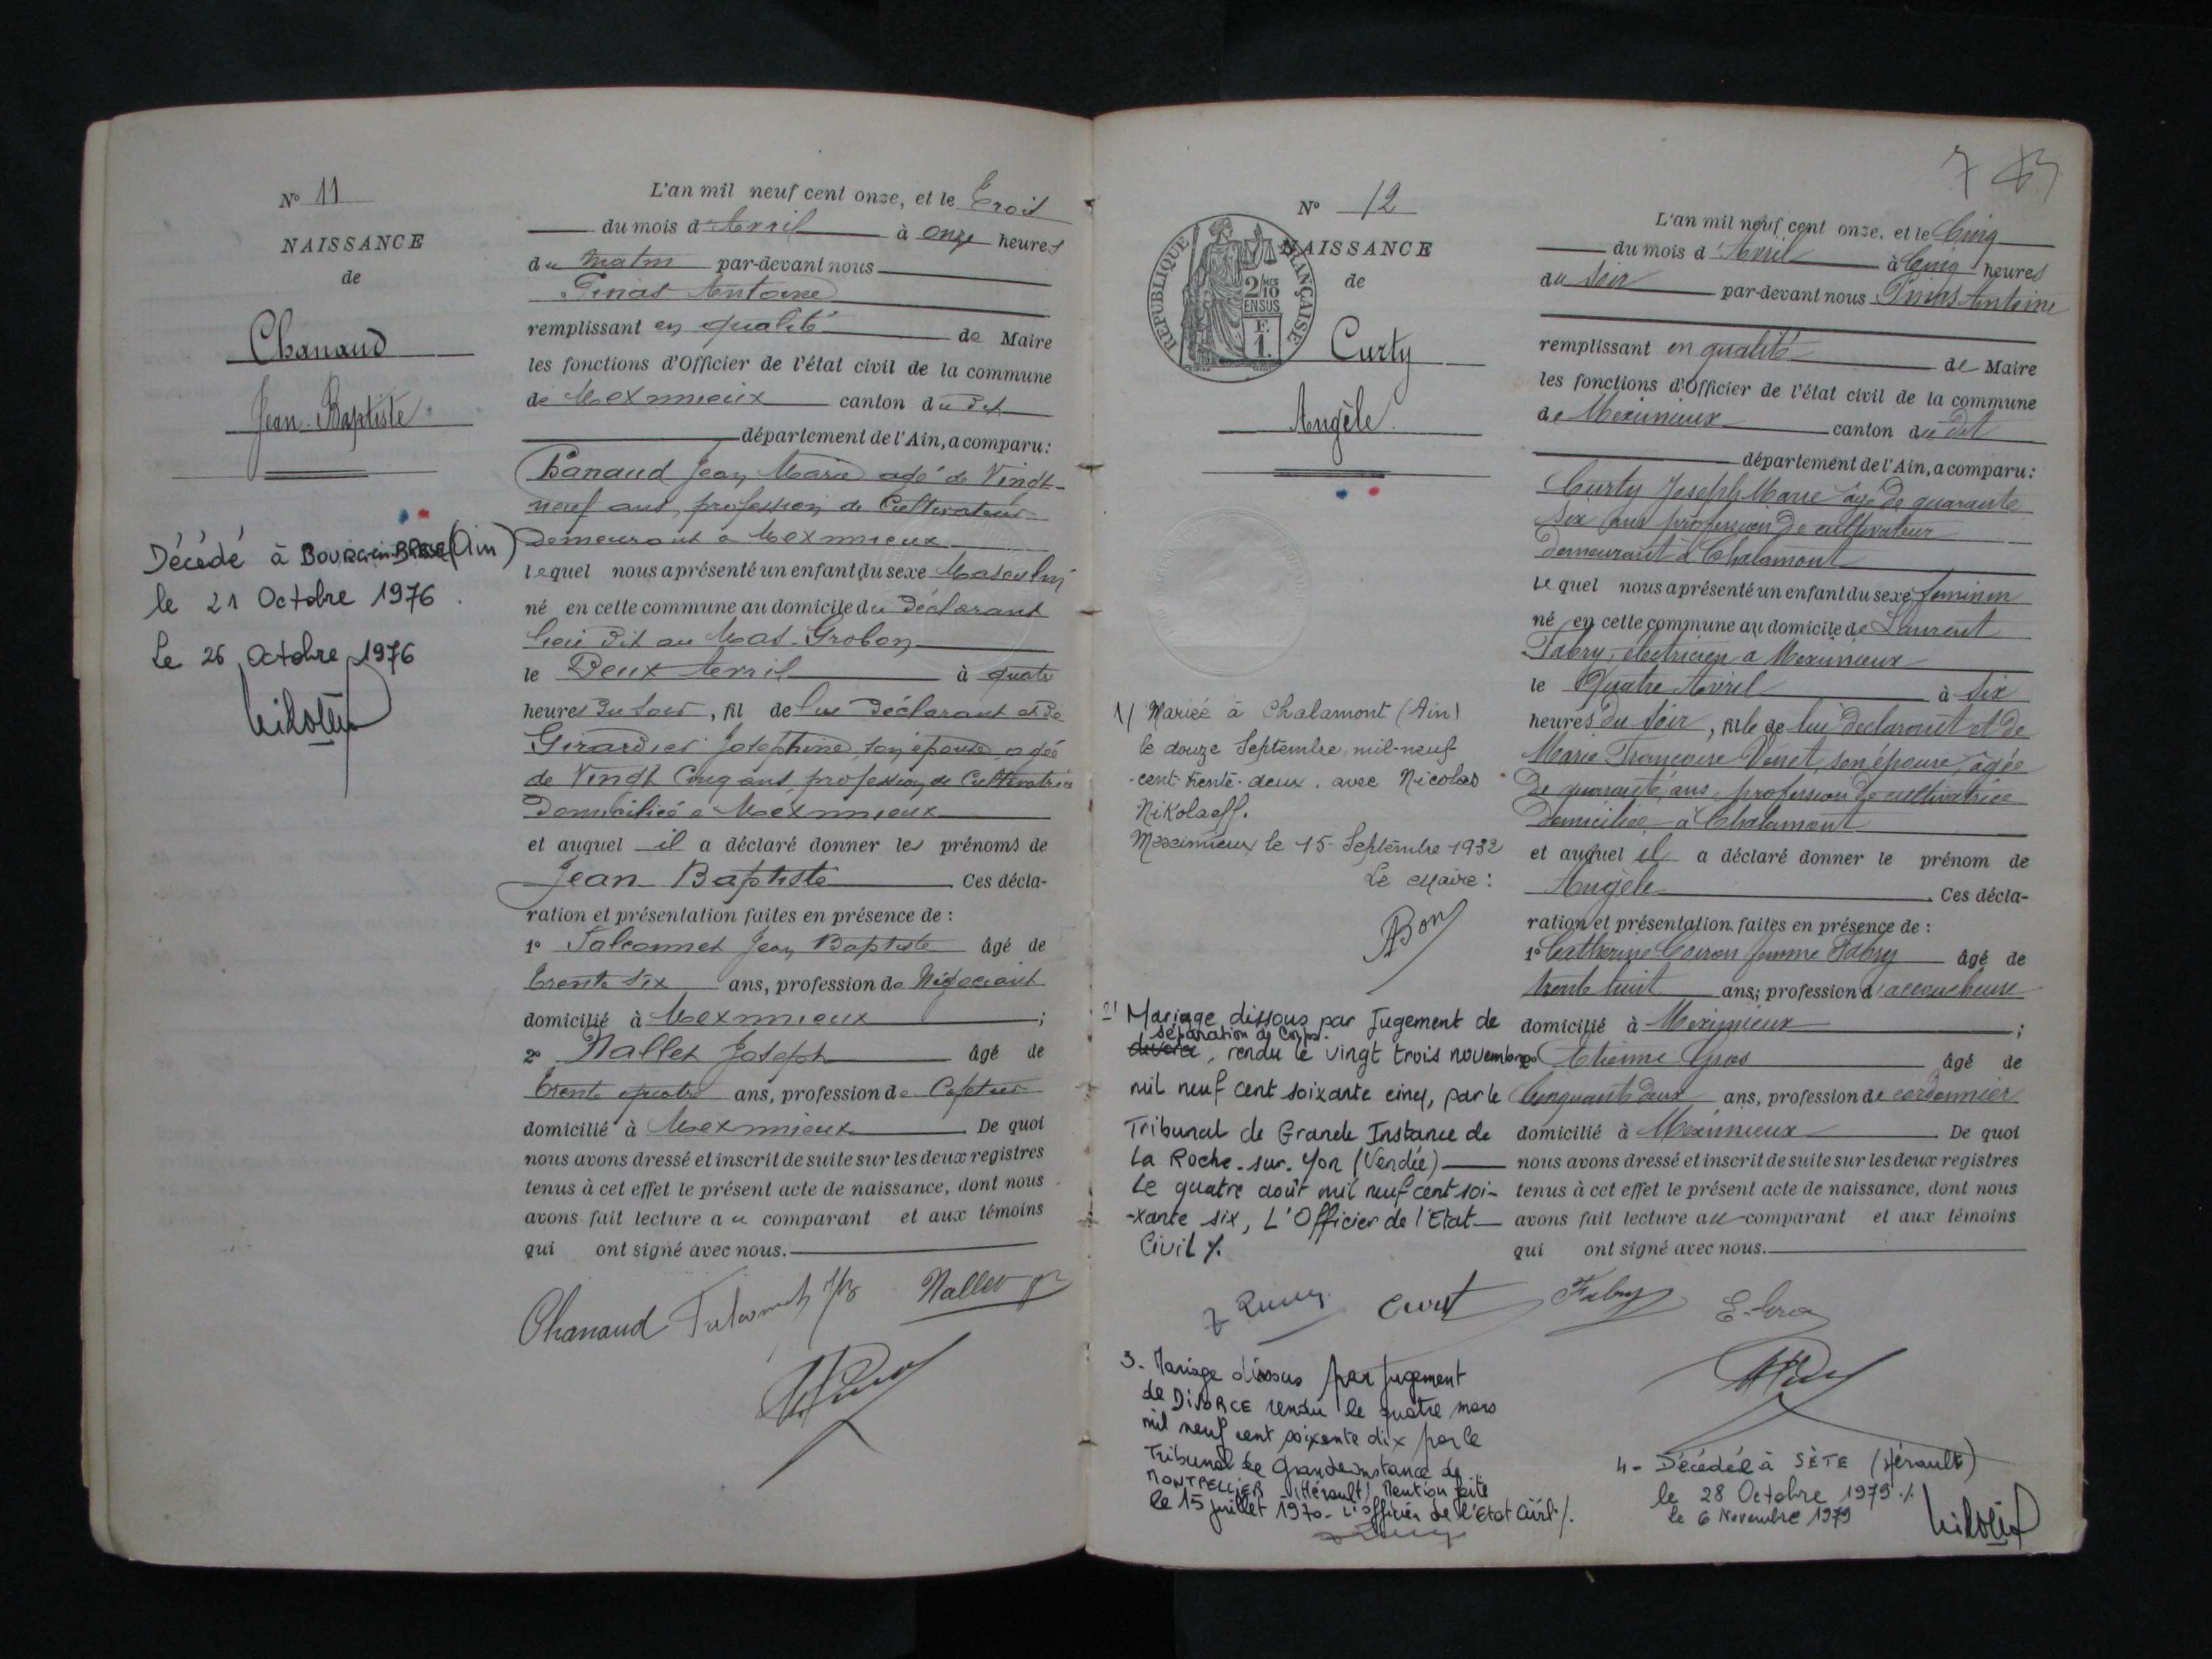 N° 11
NAISSANCE
de
Chanaud
Jean-Baptiste
Décédé à BOURG-en-BRESSE (Ain)
le 21 Octobre 1976.
Le 26 Octobre 1976
L'an mil neuf cent onze, et le Trois
du mois d'Avril à onze heures
du Matin par-devant nous
Pinas Antoine
remplissant en qualité de Maire
les fonctions d'Officier de l'état civil de la commune
de Meximieux canton du dit
département de l'Ain, a comparu:
Chanaud Jean Marie agé de Vingt-
neuf ans, profession de Cultivateur
Demeurant à Meximieux
lequel nous a présenté un enfant du sexe Masculin
né en cette commune au domicile du Déclarant
lieu dit au Mas-Grobon
le Deux Avril à quatre
heures du Soir, fil de lui Déclarant et de
Girardier Joséphine, son épouse, agée
de Vingt Cinq ans, profession de Cultivatrice
Domiciliée à Meximieux
et auquel il a déclaré donner les prénoms de
Jean Baptiste Ces décla-
ration et présentation faites en présence de :
1° Falconnet Jean Baptiste âgé de
trente six ans, profession de Négociant
domicilié à Meximieux ;
2° Nallet Joseph âgé de
trente quatre ans, profession de
domicilié à Meximieux De quoi
nous avons dressé et inscrit de suite sur les deux registres
tenus à cet effet le présent acte de naissance, dont nous
avons fait lecture au comparant et aux témoins
qui ont signé avec nous.
Chanaud Falconnet Nallet
7
N° 12
NAISSANCE
de
RÉPUBLIQUE FRANÇAISE
2/10
EN SUS
F.
1.
Curty
Angèle
1/ Mariée à Chalamont (Ain)
le douze Septembre mil-neuf
-cent-trente-deux. avec Nicolas
Nikolaeff.
Meximieux le 15 Septembre 1932
Le Maire :
Bon
2/ Mariage dissous par Jugement de
séparation de Corps
divorce, rendu le vingt trois novembre
mil neuf cent soixante cinq, par le
Tribunal de Grande Instance de
La Roche-sur-Yon (Vendée)
Le quatre août mil neuf cent soi-
-xante six, L'Officier de l'Etat
Civil %.
3- Mariage dissous par Jugement
de DIVORCE rendu le quatre mars
mil neuf cent soixante dix par le
Tribunal de Grande instance de
MONTPELLIER (Hérault) Mention faite
le 15 juillet 1970- L'officier de l'Etat Civil %.
L'an mil neuf cent onze, et le Cinq
du mois d'Avril à Cinq heures
du soir par-devant nous Pinas Antoine
remplissant en qualité de Maire
les fonctions d'Officier de l'état civil de la commune
de Meximieux canton du dit
département de l'Ain, a comparu:
Curty Joseph Marie âgé de quarante
six ans profession de cultivateur
Demeurant à Chalamont
Lequel nous a présenté un enfant du sexe féminin
né en cette commune au domicile de Laurent
Fabry, électricien a Meximieux
le Quatre Avril à Six
heures du soir, fille de lui déclarant et de
Marie Françoise Venet, son épouse, âgée
De quarante ans, profession de cultivatrice
Domiciliée à Chalamont
et auquel il a déclaré donner le prénom de
Angèle Ces décla-
ration et présentation faites en présence de :
1° Catherine Coiron femme Fabry âgé de
trente huit ans; profession d'accoucheuse
domicilié à Meximieux ;
2° Etienne Gros âgé de
Cinquante deux ans, profession de cordonnier
domicilié à Meximieux De quoi
nous avons dressé et inscrit de suite sur les deux registres
tenus à cet effet le présent acte de naissance, dont nous
avons fait lecture au comparant et aux témoins
qui ont signé avec nous.
Curt Fabry E. Gros
4- Décédée à SÈTE (Hérault)
le 28 Octobre 1979 %.
Le 6 Novembre 1979